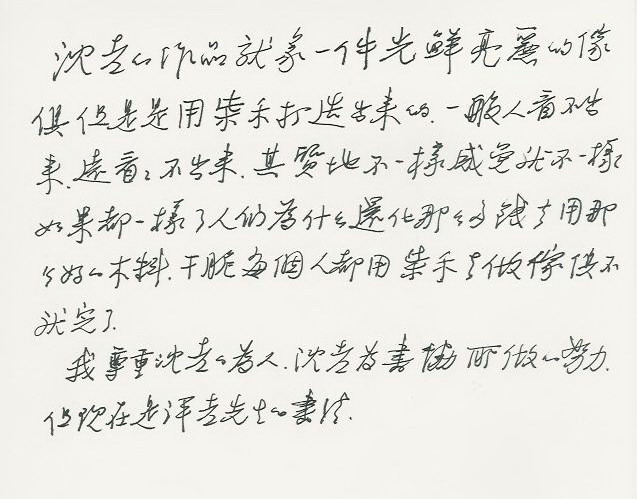 沈老的作品就象一件光鮮亮麗的傢
俱但是是用柴禾打造出来的.一般人看不出
来.遠看之不出来.其質地不一樣感覚就不一樣
如果都一樣了人们為什么還化那么多錢去用那
么好的木料.干脆每個人都用柴禾去做傢俱不
就完了.
我尊重沈老的為人.沈老為書協所做的努力.
但現在是评老先生的書法.